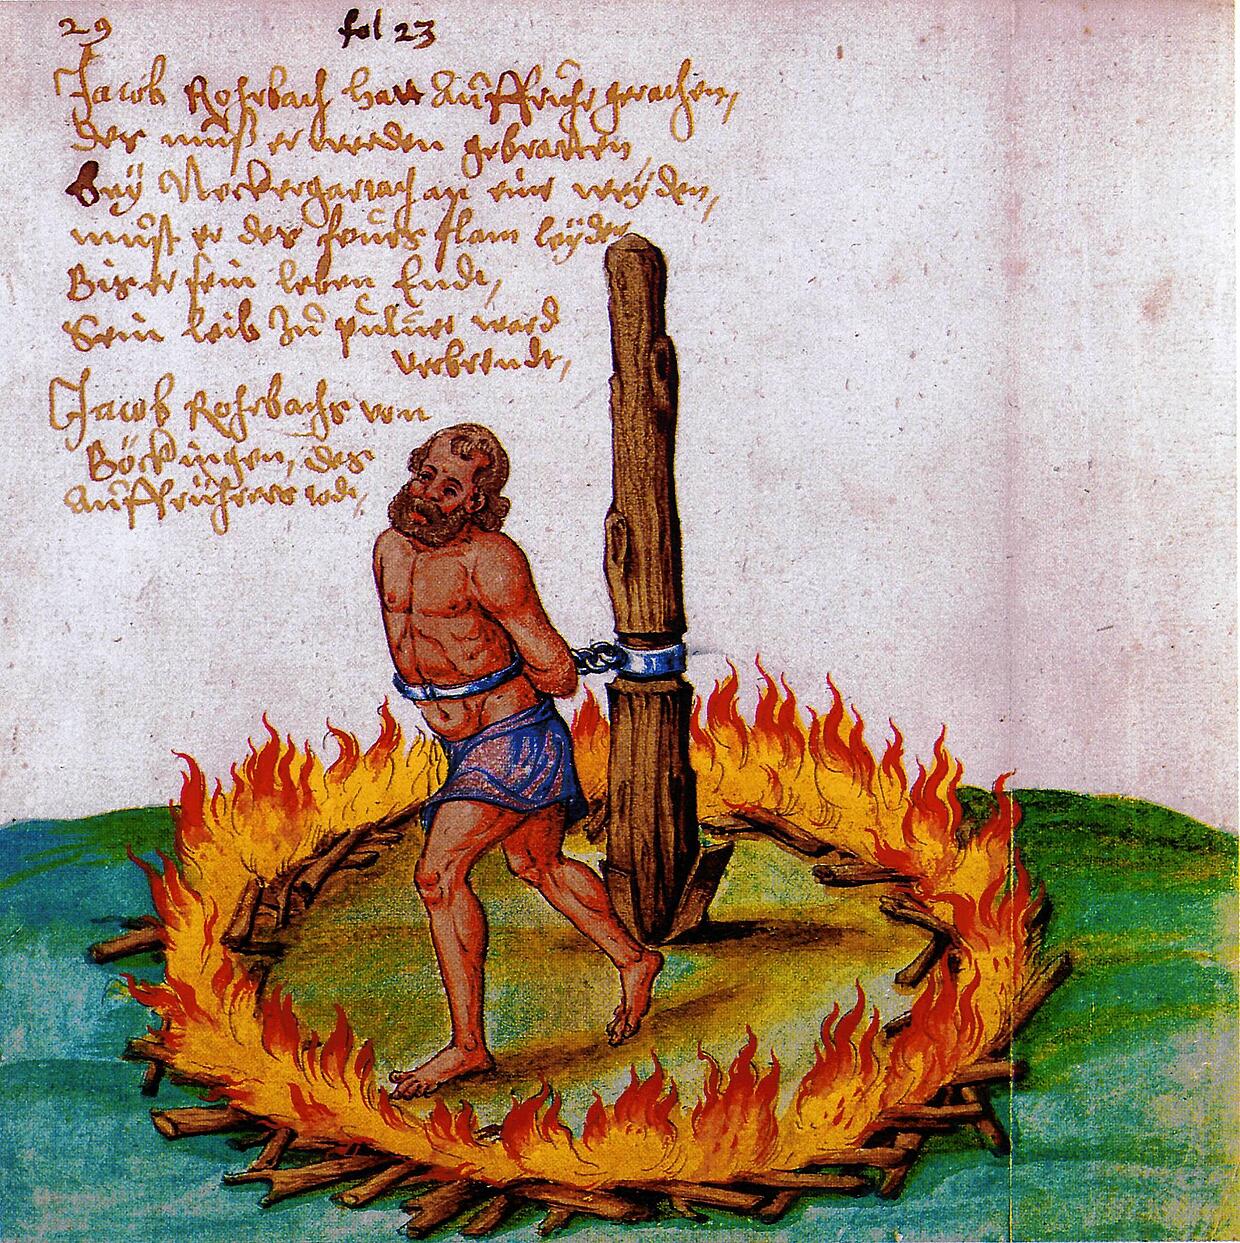 29 fol 23
Jacob Rohrbach hatt Auffruhr gerathen,
Des muß er werden gebratten,
Bey Neckergartach an eine weyden,
must er des feuers flam leyden
Bis er sein leben Endt,
Sein leib zu pulver ward
verbrendt,
Jacob Rohrbachs von
Böckingen, des
Auffrührers todt,